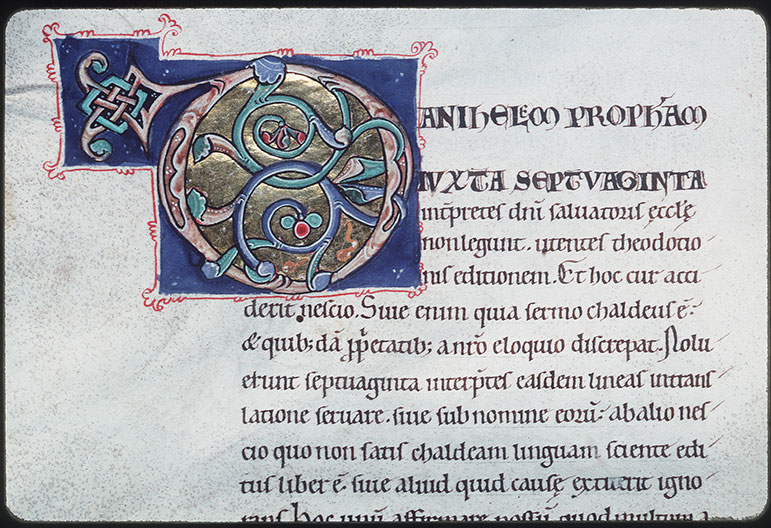 DANIHELEM PROPHAM
IVXTA SEPTVAGINTA
int͛pretes dn̄i saluatoris ęcclę
non legunt. utentes theodotio
nis editionem. Et hoc cur acci
derit nescio. Siue enim quia sermo chaldeus ē.
& quib; dā p̱p̱etatib; a nr̄o eloquio discrepat. Nolu
erunt septuaginta interp̄tes easdem lineas in trans
latione seruare. siue sub nomine eorū. ab alio nes
cio quo non satis chaldeam linguam sciente edi
tus liber ē. siue aliud quid causę extiterit igno
rans. hoc unū affirmare possū quod multum a